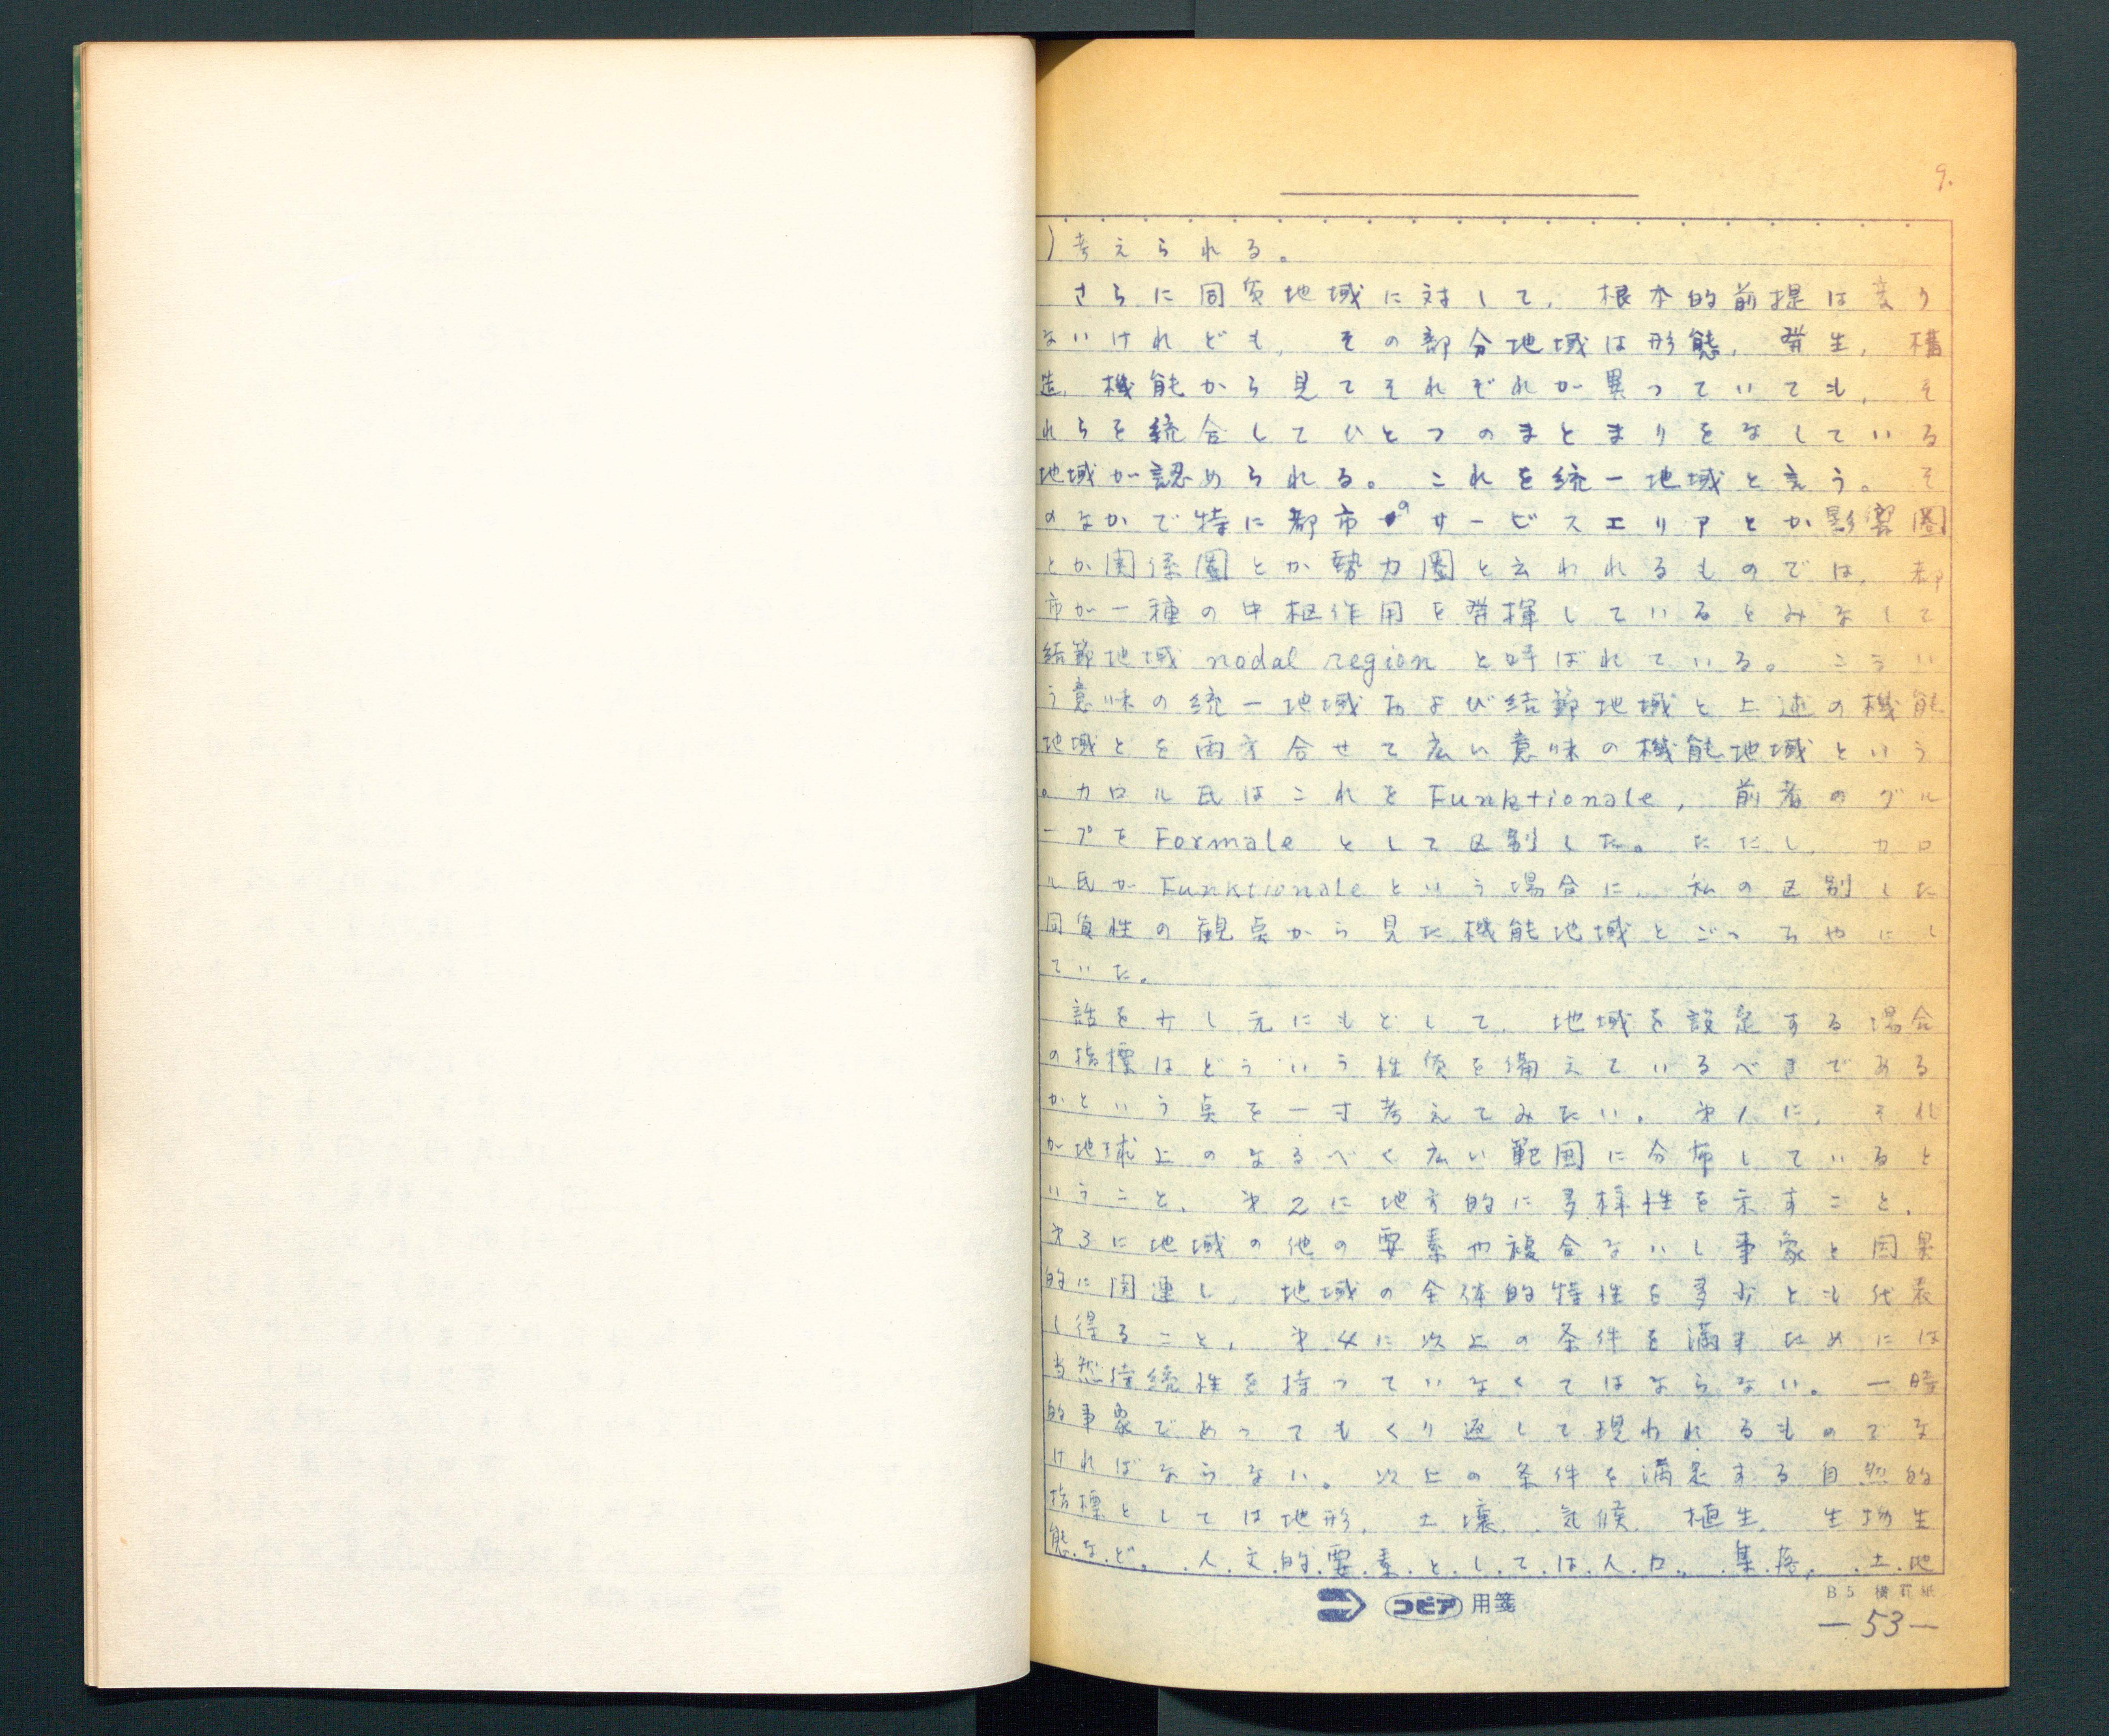 9.
)考えられる。
さらに同質地域に対して，根本的前提は変り
ないけれども，その部分地域は形態，発生，構
造，機能から見てそれぞれが異っていても，そ
れらを統合してひとつのまとまりをなしている
地域が認められる。これを統一地域と言う。そ
のなかで特に都市のサービスエリアとか影響圏
とか関係圏とか勢力圏と云われるものでは，都
市が一種の中枢作用を発揮しているとみなして
結節地域nodal regionと呼ばれている。こうい
う意味の統一地域および結節地域と上述の機能
地域とを両方合せて広い意味の機能地域という
。カロル氏はこれをFunktionale，前者のグル
ープをFormaleとして区別した。ただし，カロ
ル氏がFunktionaleという場合に，私の区別した
同質性の観点から見た機能地域とごっちゃにし
ていた。
話を少し元にもどして，地域を設定する場合
の指標はどういう性質を備えているべきである
かという点を一寸考えてみたい。才1に，それ
が地球上のなるべく広い範囲に分布していると
いうこと，才2に地方的に多様性を示すこと，
才3に地域の他の要素や複合ないし事象と因果
的に関連し，地域の全体的特性を多少とも代表
し得ること，才4に以上の条件を満すためには
当然持続性を持っていなくてはならない。一時
的事象であってもくり返して現われるものでな
ければならない。以上の条件を満足する自然的
指標としては地形，土壌，気候，植生，生物生
態など。人文的要素としては人口，集落，土地
コピア用箋
B5横罫紙
—53—